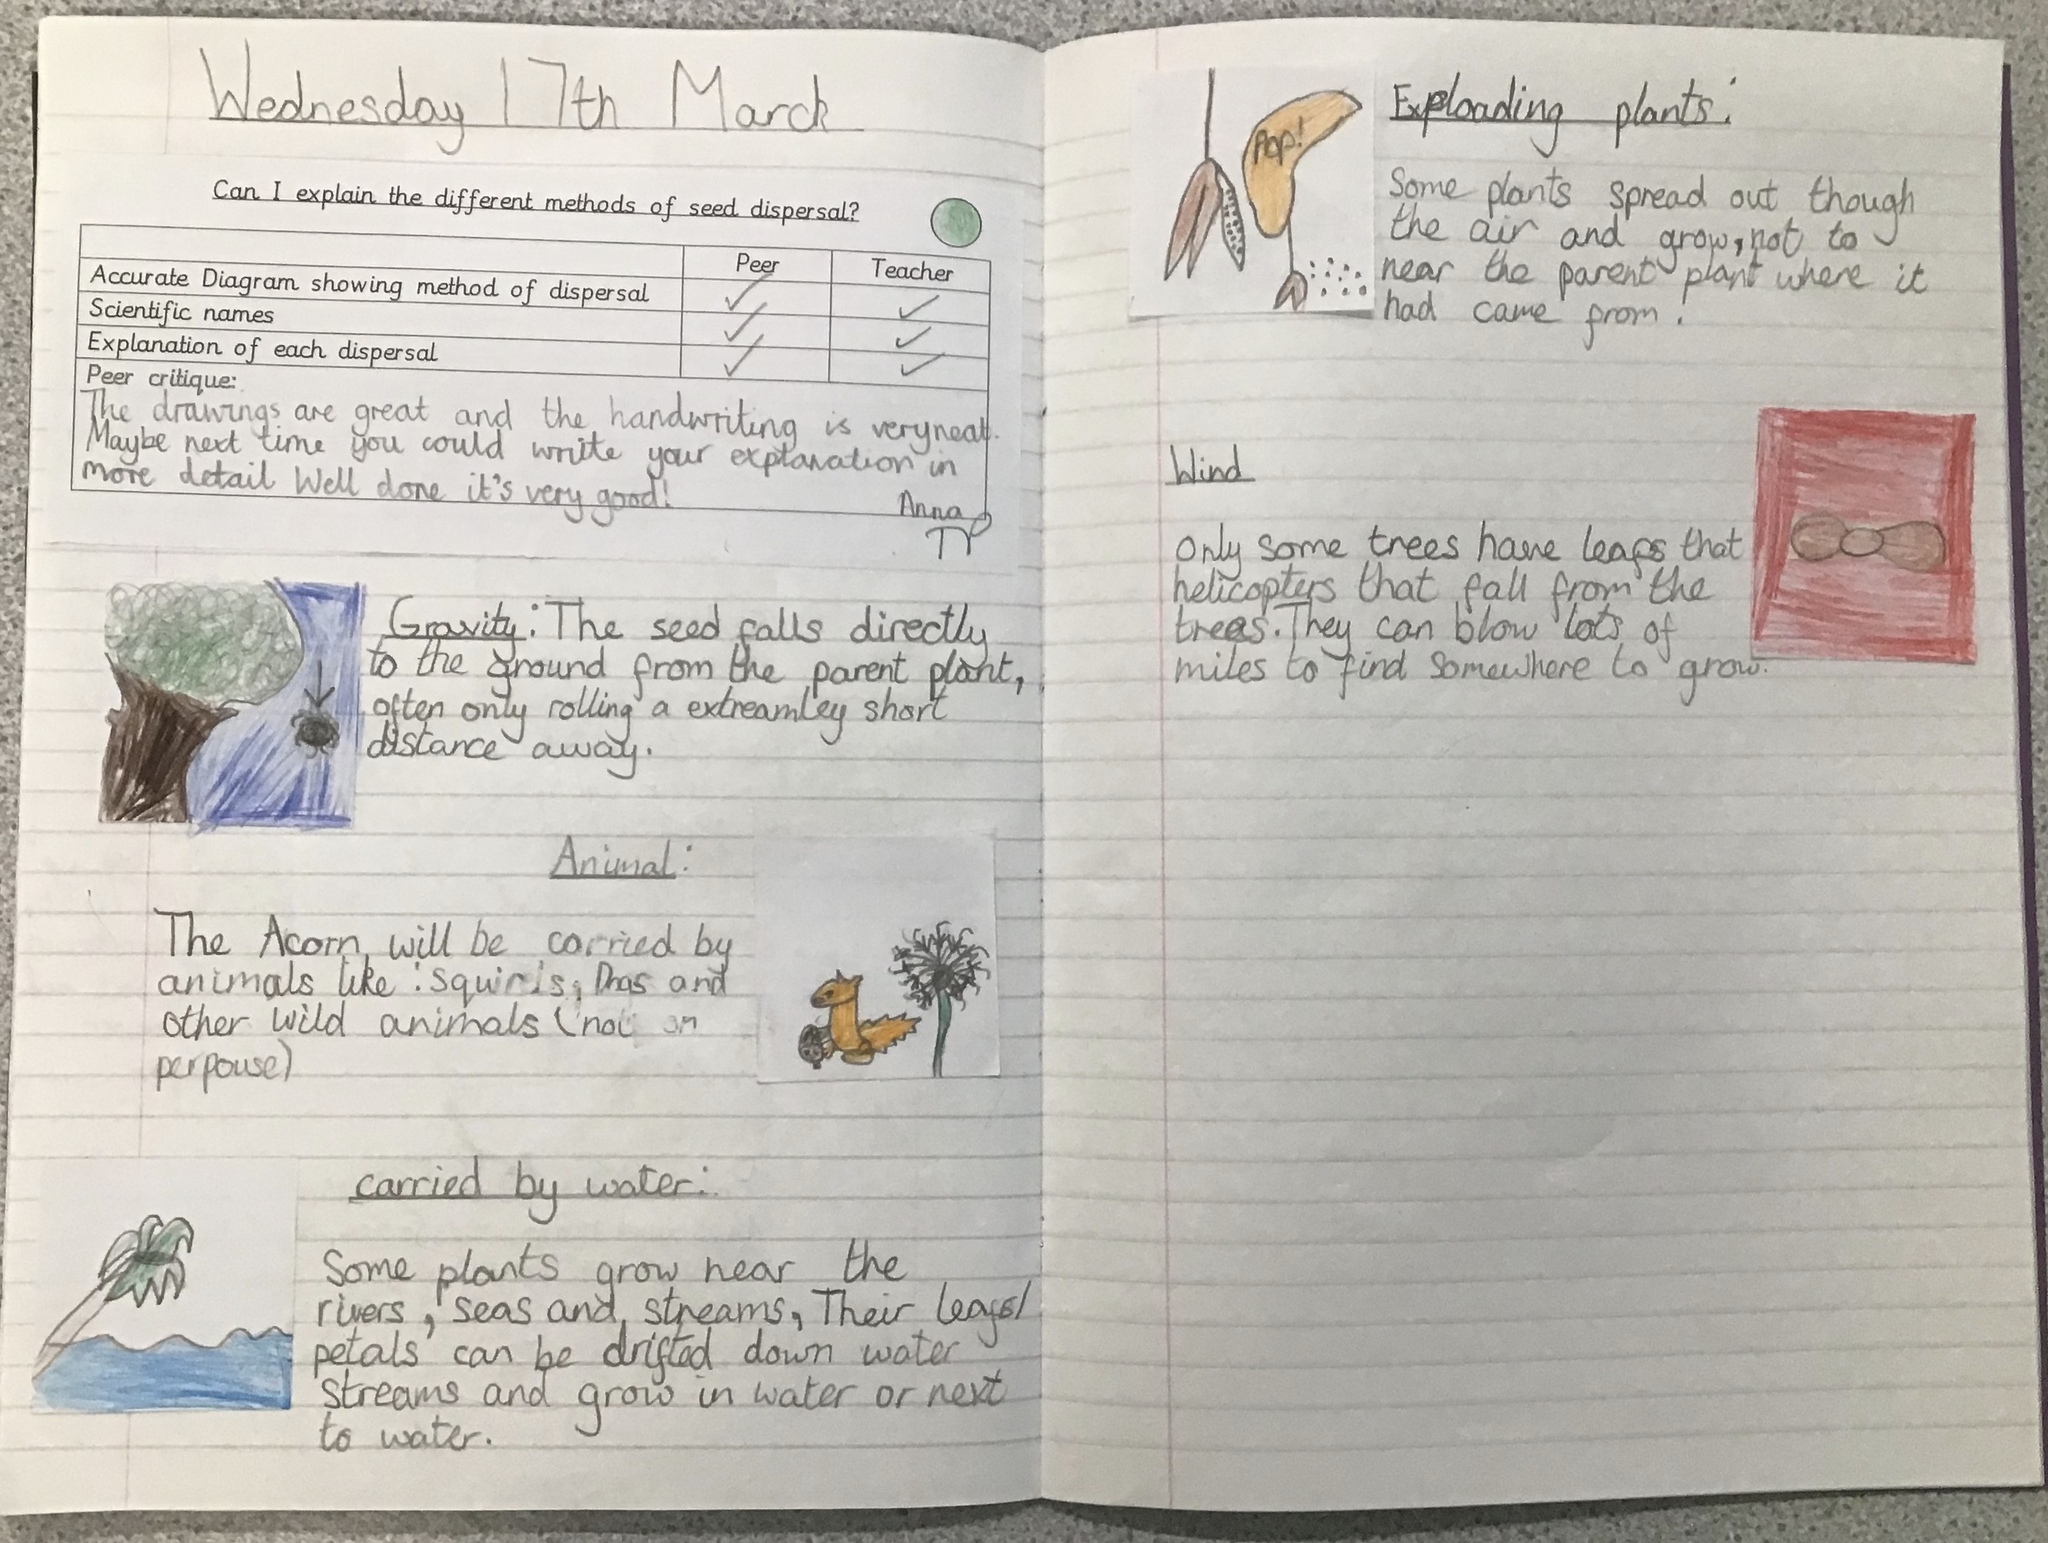 Wednesday 17th March
Can I explain the different methods of seed dispersal?
Peer Teacher
Accurate Diagram showing method of dispersal ✓ ✓
Scientific names ✓ ✓
Explanation of each dispersal ✓ ✓
Peer critique:
The drawings are great and the handwriting is very neat.
Maybe next time you could write your explanation in
more detail Well done it's very good!
Anna
Gravity: The seed falls directly
to the ground from the parent plant,
often only rolling a extreamley short
distance away.
Animal:
The Acorn will be carried by
animals like: squirls, Dogs and
other wild animals (not on
perpouse)
carried by water:
Some plants grow near the
rivers, seas and streams, Their leafs/
petals can be drifted down water
streams and grow in water or next
to water.
Pop!
Exploading plants:
Some plants spread out though
the air and grow, not to
near the parent plant where it
had came from.
Wind
Only some trees have leafs that
helicopters that fall from the
trees. They can blow lots of
miles to find somewhere to grow.